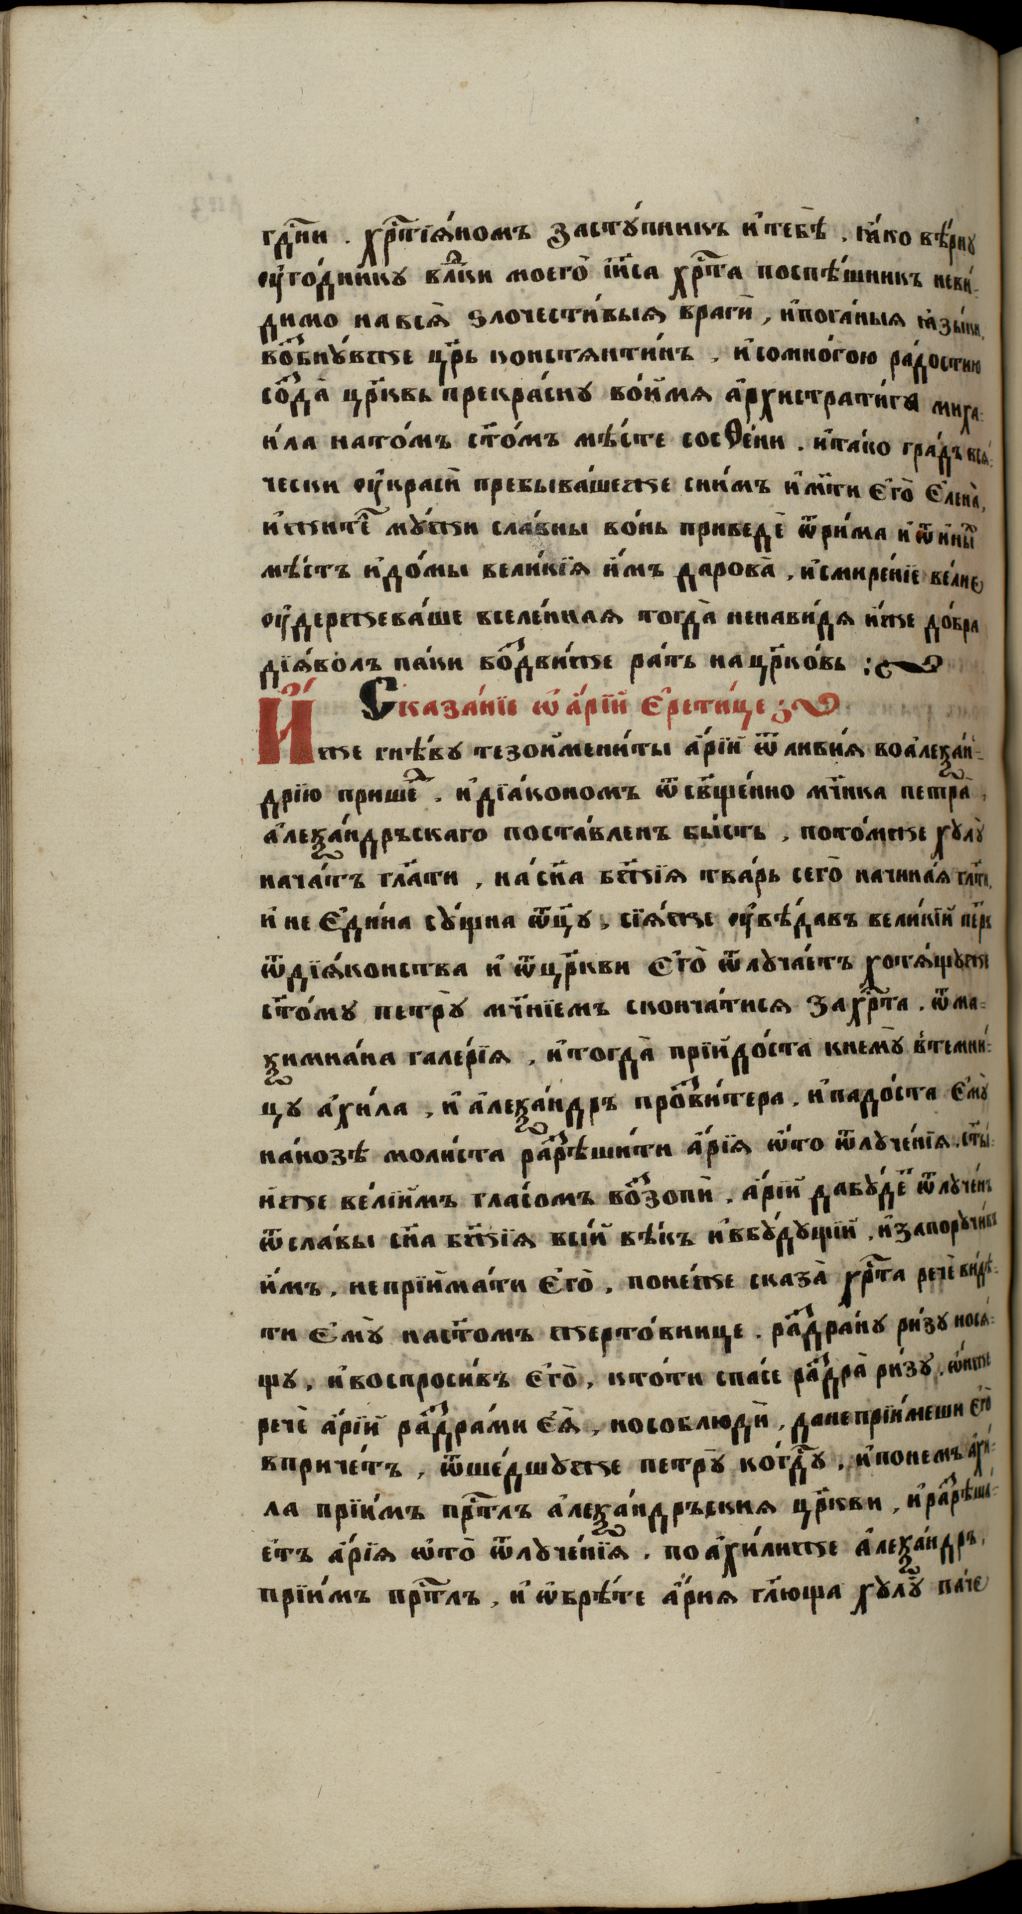 гдⷭ҇ни . хрⷭ҇тїѧ́номъ застꙋ́пникъ и҆тебѣ̀ , ꙗ҆́ко вѣ́рнꙋ
ᲂу҆го́дникꙋ влⷣки моегѡ̀ і҆и҃са хрⷭ҇та поспѣ́шникъ неви́-
димо на всѧ̀ ѕлочести́выѧ врагѝ , и҆пога́ныѧ ꙗ҆зы́ки ,
воⷥбнꙋ́вже цр҃ь констѧнти́нъ , и҆сомно́гою ра́достию
соⷥда̀ цр҃ковь прекра́снꙋ во́имѧ а҆рхистрати́га миха-
и́ла нато́мъ ст҃о́мъ мѣ́сте сосѳе́ни . и҆та́ко гра́дъ всѧ́-
чески ᲂу҆красѝ пребыва́шеже сни́мъ и҆мт҃и є҆го̀ є҆ле́на ,
и҆житеⷧ҇ мꙋ́жи сла́вны во́нь приведѐ ѿри́ма и҆ѿи҆ны́ⷯ
мѣ́стъ и҆до́мы вели́кїѧ и҆́мъ дарова̀ , и҆смире́нїе ве́лие
ᲂу҆держева́ше вселе́ннаѧ тогда̀ ненави́дѧ и҆́же до́бра
дїѧ́волъ па́ки воⷥдви́же ра́ть нацр҃ко́вь :
Сказа́нїе ѡ҆ а҆́рїи є҆рети́це
И҆́же гнѣ́вꙋ тезоимени́ты а҆́рїи ѿливи́ѧ воа҆леѯа́н-
дрїю прише́ⷣ . и҆дїа́кономъ ѿсщ҃е́нно мч҃ника петра̀ ,
а҆леѯа́ндръскаго поста́вленъ бы́сть , пото́мже хꙋлꙋ̀
нача́тъ гл҃ати , на сн҃а бж҃їѧ тва́рь сего̀ начина́ѧ гл҃ти ,
и҆ не є҆ди́на сꙋ́щна ѿц҃ꙋ , сїѧ́же ᲂу҆вѣ́давъ вели́кїи пе́тръ
ѿдїѧ́конства и҆ ѿцр҃кви є҆го̀ ѿлꙋча́етъ хотѧ́щꙋже
ст҃о́мꙋ петрꙋ̀ мч҃нїемъ сконча́тисѧ захрⷭ҇та . ѿма-
ѯимиа́на гале́рїѧ , и҆тогда̀ прїидо́ста кнемꙋ̀ втемни́-
цꙋ а҆хи́ла , и҆ а҆леѯа́ндръ проⷥви́тера , и҆падо́ста є҆мꙋ̀
на́нозѣ моли́ста раⷥрѣши́ти а҆́рїѧ ѡ҆то ѿлꙋче́нїѧ . ст҃ы́-
и҆же ве́лїимъ гла́сомъ воⷥзопѝ , а҆́рїи дабꙋ́деⷮ ѿлꙋче́нъ
ѿсла́вы сн҃а бж҃їѧ всі́и вѣ́къ и҆вбꙋ́дꙋщїи , и҆запорꙋчи́въ
и҆́мъ , неприима́ти є҆го̀ , поне́же сказа̀ хрⷭ҇та речѐ видѣ́-
ти є҆мꙋ̀ наст҃о́мъ жерто́внице . раⷥдра́нꙋ ри́зꙋ носѧ́-
щꙋ , и҆воспроси́въ є҆го̀ , кто́ти спа́се раⷥдра̀ ри́зꙋ , ѻ҆́нже
речѐ а҆́рїи раⷥдра́ми є҆ѧ̀ , нособлюдѝ , данеприи́меши є҆го̀
впричéтъ , ѿше́дшꙋже петрꙋ̀ ко́гдⷭ҇ꙋ , и҆понемъ а҆хи́-
ла прїи́мъ прⷭ҇тлъ а҆леѯа́ндръскиѧ цр҃кви , и҆раⷥрѣша́-
етъ а҆́рїѧ ѡ҆то̀ ѿлꙋче́нїѧ . поа҆хи́лиже а҆леѯа́ндръ .
прїи́мъ прⷭ҇тлъ , и҆ ѡ҆брѣ́те а҆́риѧ гл҃юща хꙋлꙋ̀ па́че